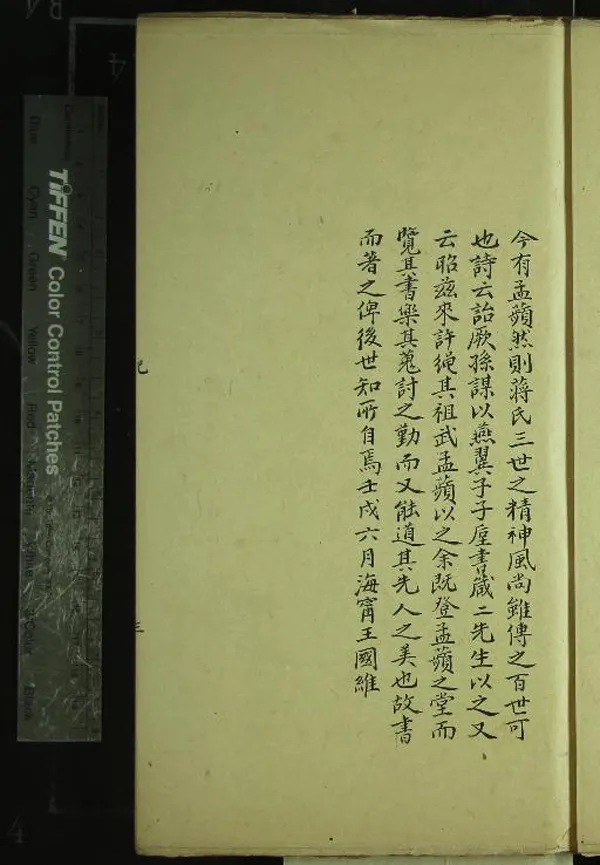 今有孟蘋然則蔣氏三世之精神風尚雖傳之百世可
也詩云詒厥孫謀以燕翼子子垕書藏二先生以之又
云昭茲來許繩其祖武孟蘋以之余既登孟蘋之堂而
覽其書樂其蒐討之勤而又能道其先人之美也故書
而著之俾後世知所自焉壬戌六月海甯王國維
記
三
TIFFEN Color Control Patches
Blue Cyan Green Yellow Red Magenta White 3/Color Black